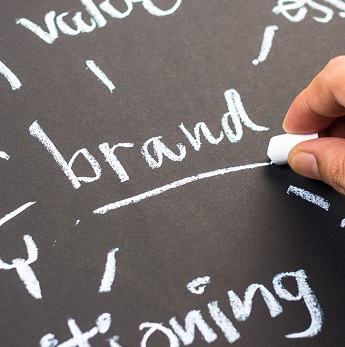 value
ess
brand
tioning